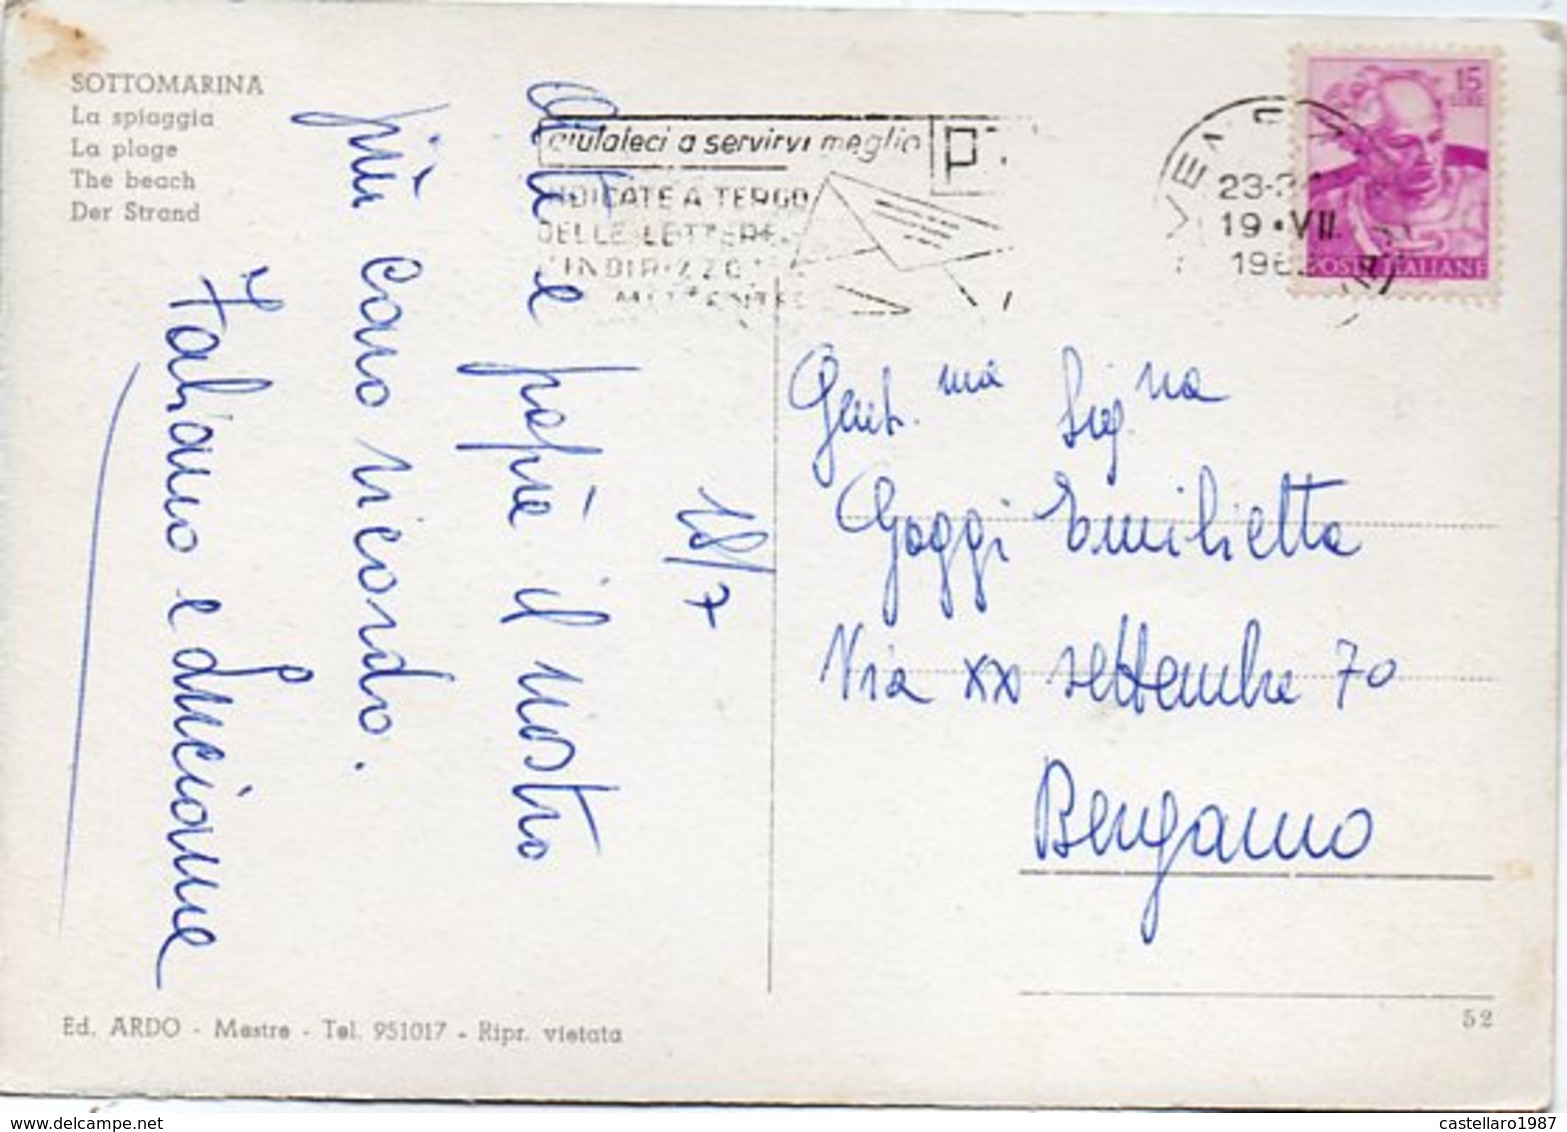 SOTTOMARINA
La spiaggia
La plage
The beach
Der Strand
aiutateci a servirvi meglio
INDICATE A TERGO
DELLE LETTERE
L'INDIRIZZO
MITTENTE
15
LIRE
POSTE ITALIANE
23-
19 • VII.
196
18/7
e papà il nostro
più caro ricordo.
Italiano e Luciana
Gent.ma Sig.na
Goggi Emilietta
Via XX settembre 70
Bergamo
Ed. ARDO - Mestre - Tel. 951017 - Ripr. vietata
52
castellaro1987
www.delcampe.net